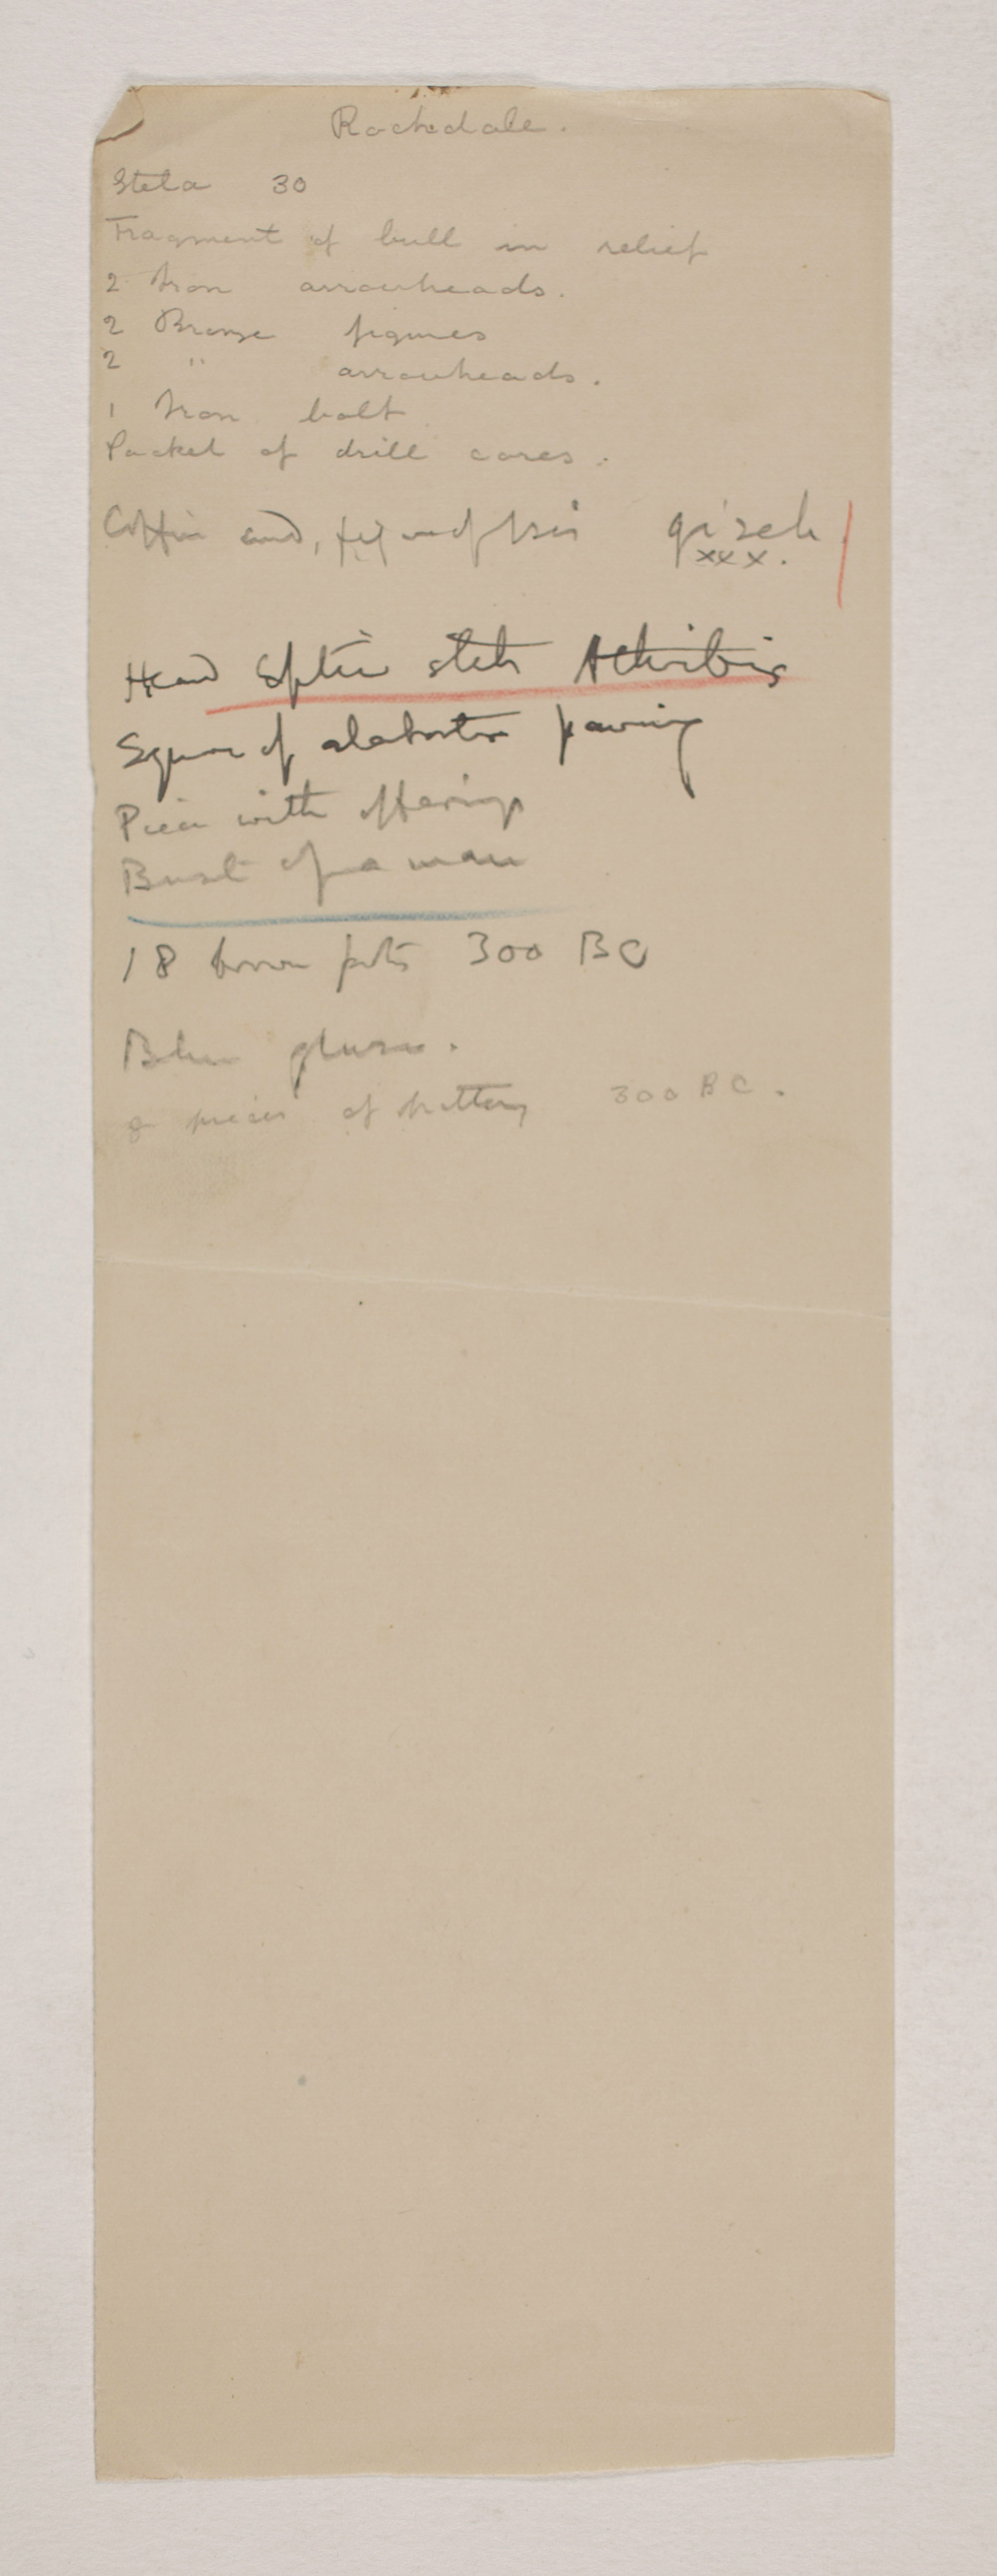 Rochdale.
Stela 30
Fragment of bull in relief
2 Iron arrowheads.
2 Bronze figures
2 " arrowheads.
1 Iron bolt
Packet of drill cores.
Coffin end, Gizeh
xxx.
Head Athribis
Square of alabaster paving
Piece with offerings
Bust of a man
18 pots 300 BC
Blue
8 pieces of pottery 300 BC.